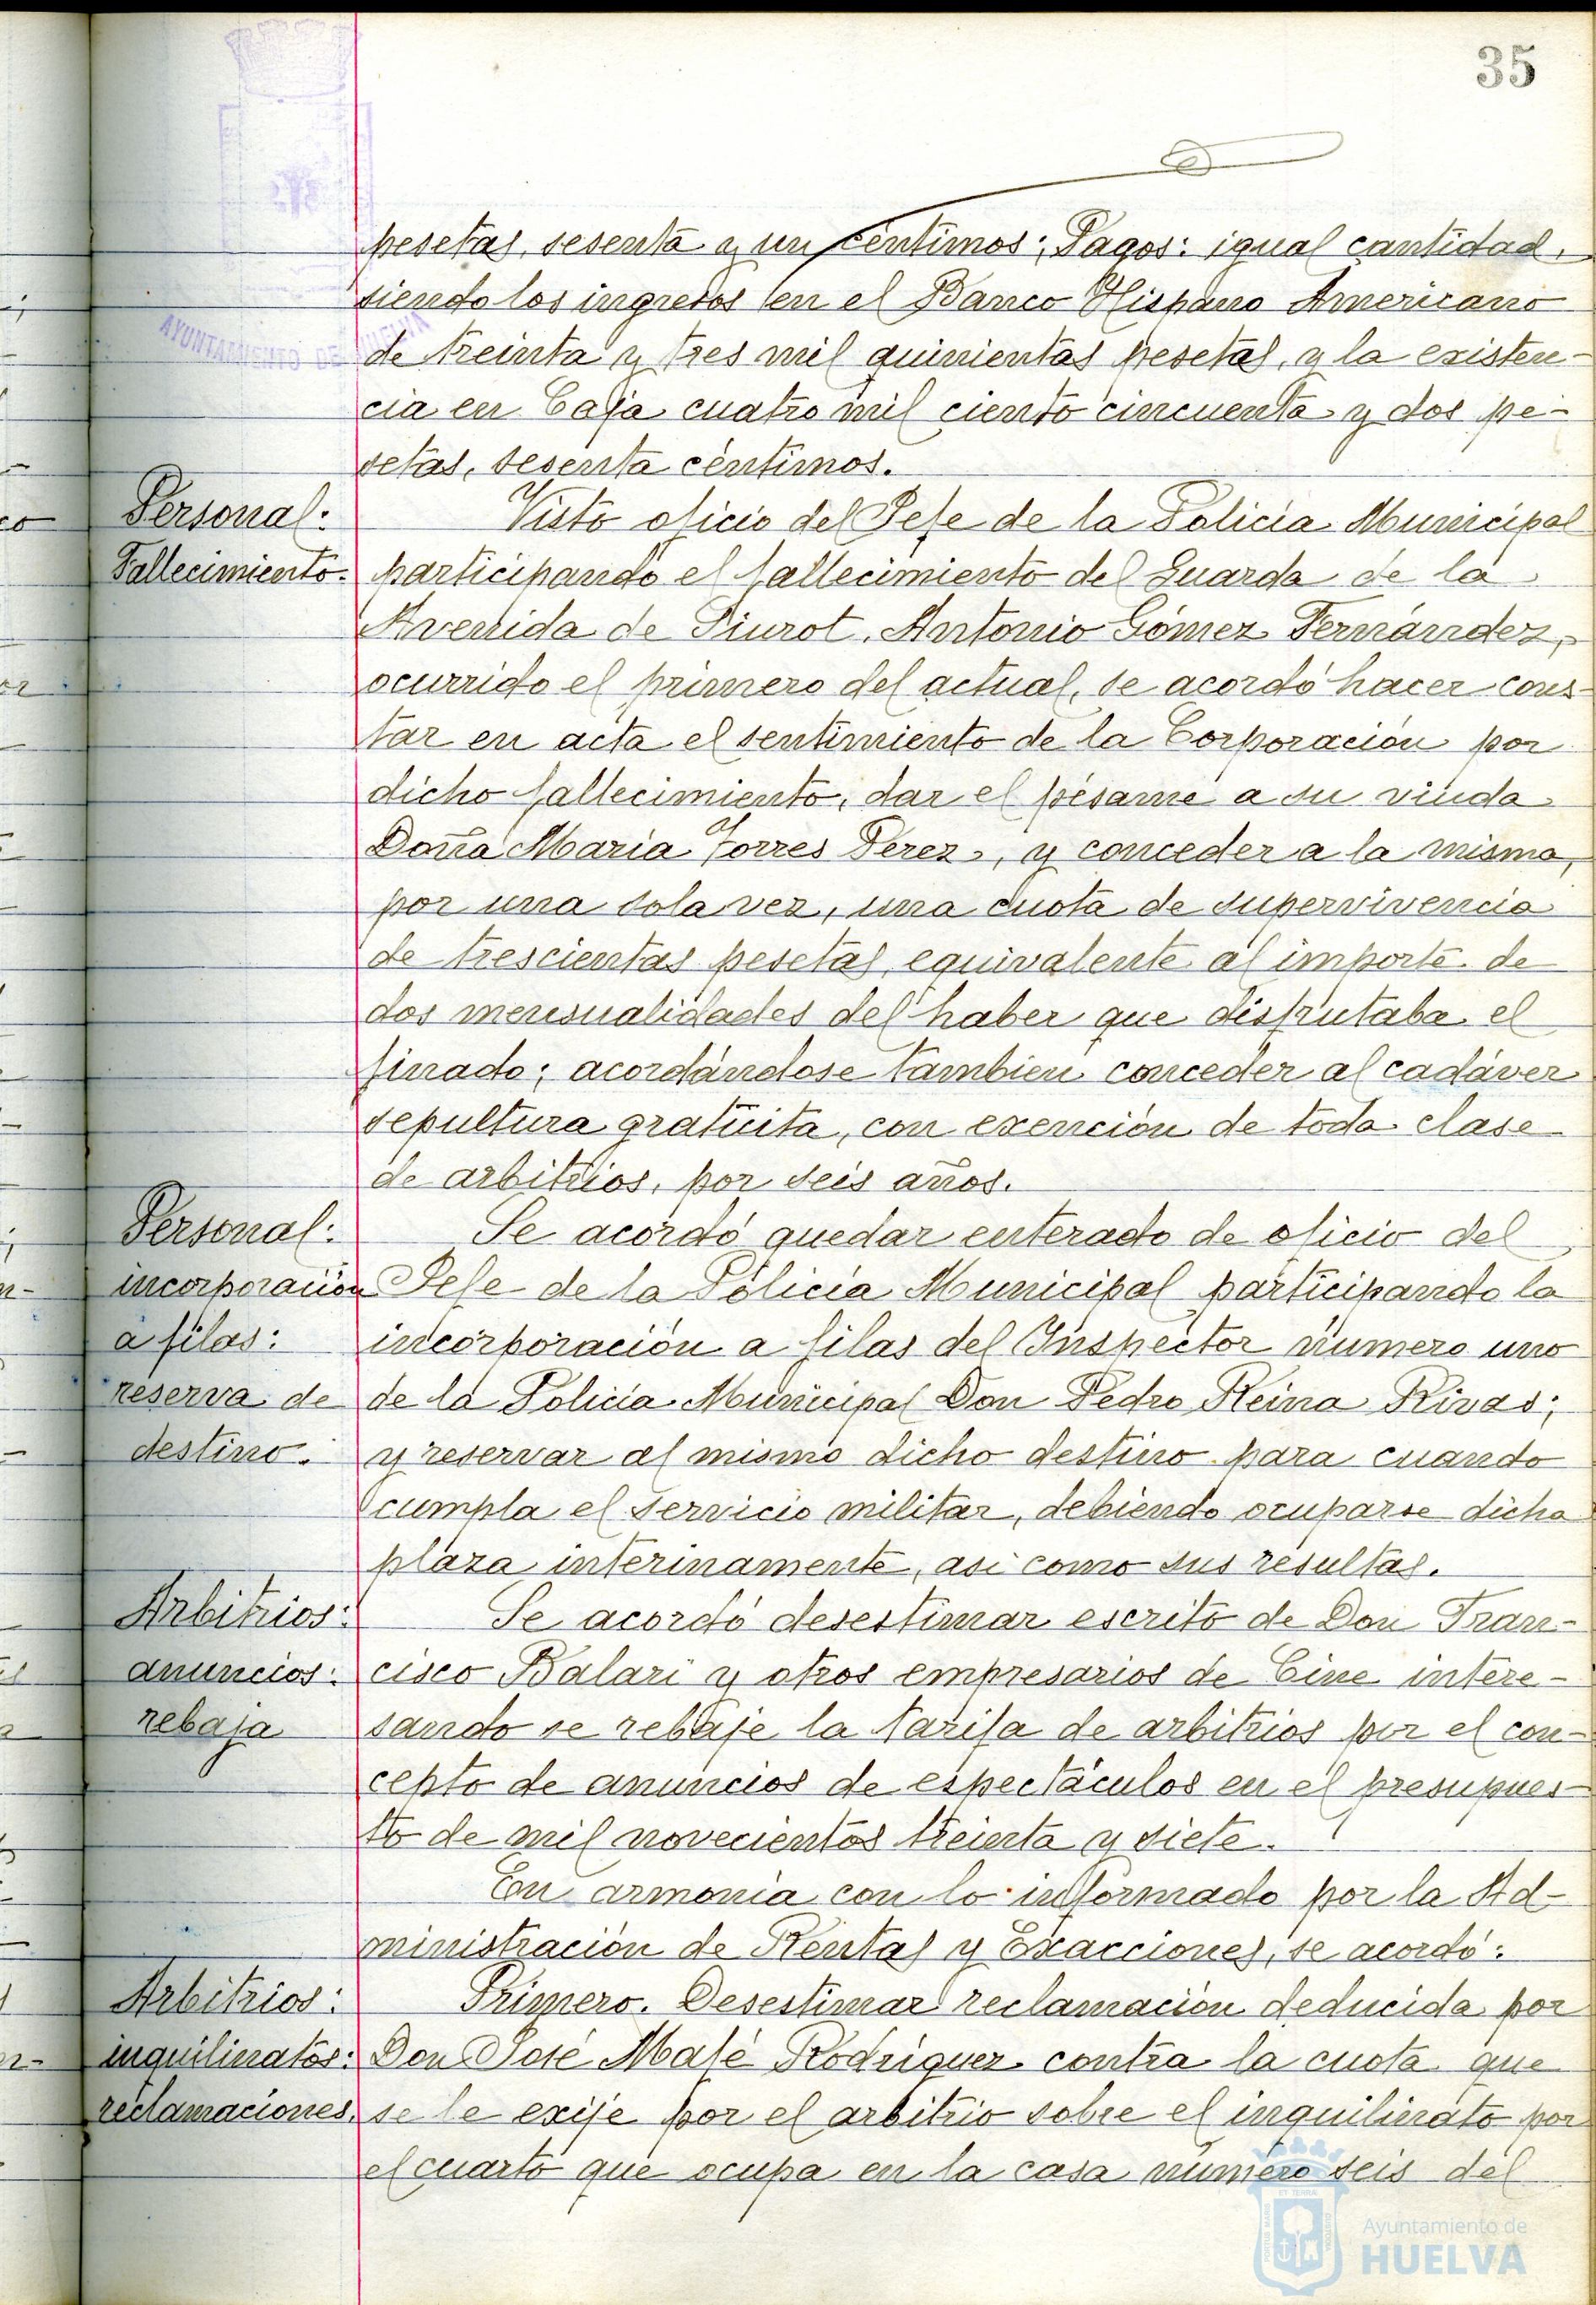 35
pesetas, sesenta y un céntimos; Pagos: igual cantidad,
siendo los ingresos en el Banco Hispano Americano
de treinta y tres mil quinientas pesetas, y la existen-
cia en Caja cuatro mil ciento cincuenta y dos pe-
setas, sesenta céntimos.
Personal:
Fallecimiento.
Visto oficio del Jefe de la Policía Municipal
participando el fallecimiento del Guarda de la
Avenida de Pinzot, Antonio Gómez Fernández,
ocurrido el primero del actual, se acordó hacer cons-
tar en acta el sentimiento de la Corporación por
dicho fallecimiento, dar el pésame a su viuda
Doña María Torres Pérez, y conceder a la misma,
por una sola vez, una cuota de supervivencia
de trescientas pesetas, equivalente al importe de
dos mensualidades del haber que disfrutaba el
finado; acordándose también conceder al cadáver
sepultura gratuita, con exención de toda clase
de arbitrios, por seis años.
Personal:
incorporación
a filas:
reserva de
destino.
Se acordó quedar enterado de oficio del
Jefe de la Policía Municipal participando la
incorporación a filas del Inspector número uno
de la Policía Municipal Don Pedro Reina Rivas;
y reservar al mismo dicho destino para cuando
cumpla el servicio militar, debiendo ocuparse dicha
plaza interinamente, así como sus resultas.
Arbitrios:
anuncios:
rebaja
Se acordó desestimar escrito de Don Fran-
cisco Balari y otros empresarios de Cine intere-
sando se rebaje la tarifa de arbitrios por el con-
cepto de anuncios de espectáculos en el presupues-
to de mil novecientos treinta y siete.
En armonía con lo informado por la Ad-
ministración de Rentas y Exacciones, se acordó:
Arbitrios:
inquilinatos:
reclamaciones.
Primero. Desestimar reclamación deducida por
Don José Malé Rodríguez contra la cuota que
se le exije por el arbitrio sobre el inquilinato por
el cuarto que ocupa en la casa número seis del
AYUNTAMIENTO DE HUELVA
Ayuntamiento de
HUELVA